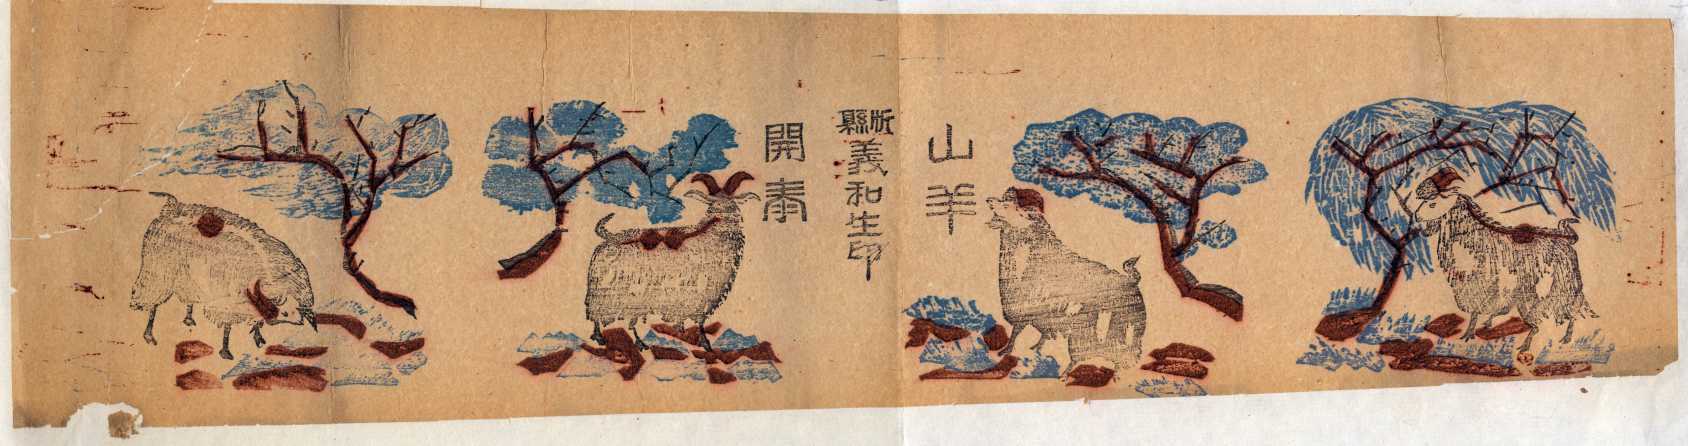 山羊
忻縣
義和生印
開泰